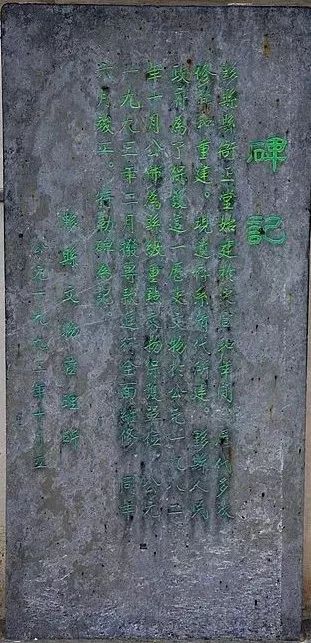 碑記
黟縣縣衙正堂始建於宋宣和年間,歷代多次
修葺和重建。現遺存系清代所建。黟縣人民
政府為了保護這一歷史文物於公元一九八二
年十月公佈為縣級重點文物保護單位,公元
一九九三年二月撥專款進行全面維修,同年
六月竣工。特勒碑為記。
黟縣文物管理所
公元一九九三年十立